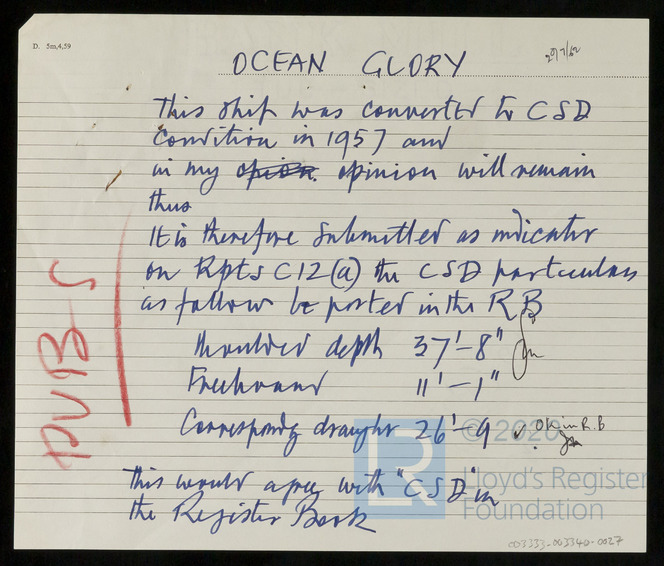 D. 5m,4,59
OCEAN GLORY
20/7/62
This ship was converted to CSD
condition in 1957 and
in my opinion will remain
thus
It is therefore submitted as indicated
on Rpts C12(a) the CSD particulars
as follow be posted in the RB
Moulded depth 37'-8"
Freeboard 11'-1"
Correspondg draught 26'-9 ✓ OK in R.B
This would agree with "CSD" in
the Register Book
PUB-S
LR
© 2020
Lloyd's Register
Foundation
003333-003340-0027